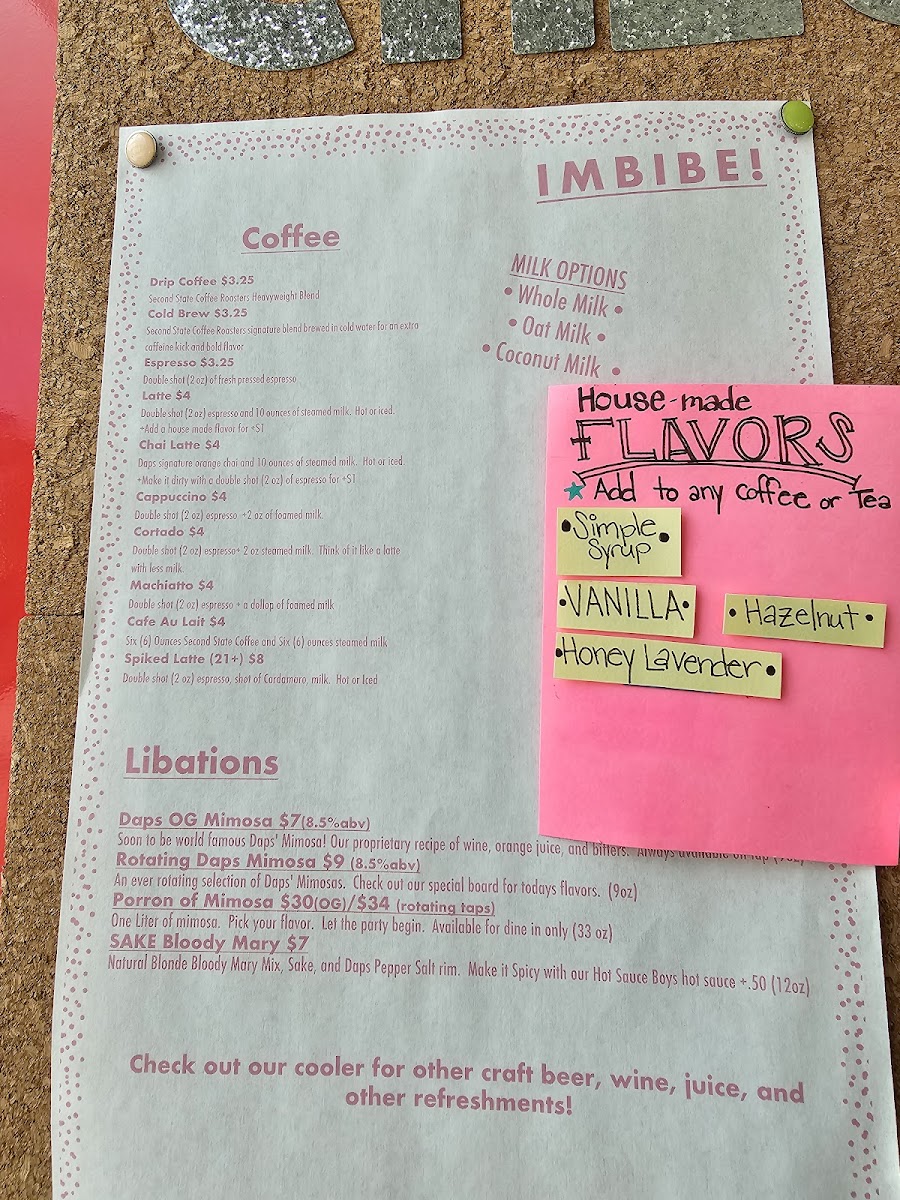 IMBIBE!
Coffee
Drip Coffee $3.25
Second State Coffee Roasters Heavyweight Blend
Cold Brew $3.25
Second State Coffee Roasters signature blend brewed in cold water for an extra
caffeine kick and bold flavor
Espresso $3.25
Double shot (2 oz) of fresh pressed espresso
Latte $4
Double shot (2 oz) espresso and 10 ounces of steamed milk. Hot or iced.
+Add a house made flavor for +$1
Chai Latte $4
Daps signature orange chai and 10 ounces of steamed milk. Hot or iced.
+Make it dirty with a double shot (2 oz) of espresso for +$1
Cappuccino $4
Double shot (2 oz) espresso +2 oz of foamed milk.
Cortado $4
Double shot (2 oz) espresso+ 2 oz steamed milk. Think of it like a latte
with less milk.
Machiatto $4
Double shot (2 oz) espresso + a dollop of foamed milk
Cafe Au Lait $4
Six (6) Ounces Second State Coffee and Six (6) ounces steamed milk
Spiked Latte (21+) $8
Double shot (2 oz) espresso, shot of Cardamaro, milk. Hot or Iced
MILK OPTIONS
• Whole Milk •
• Oat Milk •
• Coconut Milk •
House-made
FLAVORS
Add to any coffee or Tea
• Simple
Syrup •
• VANILLA •
• Hazelnut •
• Honey Lavender •
Libations
Daps OG Mimosa $7(8.5%abv)
Soon to be world famous Daps' Mimosa! Our proprietary recipe of wine, orange juice, and bitters. Always available on tap
Rotating Daps Mimosa $9 (8.5%abv)
An ever rotating selection of Daps' Mimosas. Check out our special board for todays flavors. (9oz)
Porron of Mimosa $30(OG)/$34 (rotating taps)
One Liter of mimosa. Pick your flavor. Let the party begin. Available for dine in only (33 oz)
SAKE Bloody Mary $7
Natural Blonde Bloody Mary Mix, Sake, and Daps Pepper Salt rim. Make it Spicy with our Hot Sauce Boys hot sauce +.50 (12oz)
Check out our cooler for other craft beer, wine, juice, and
other refreshments!